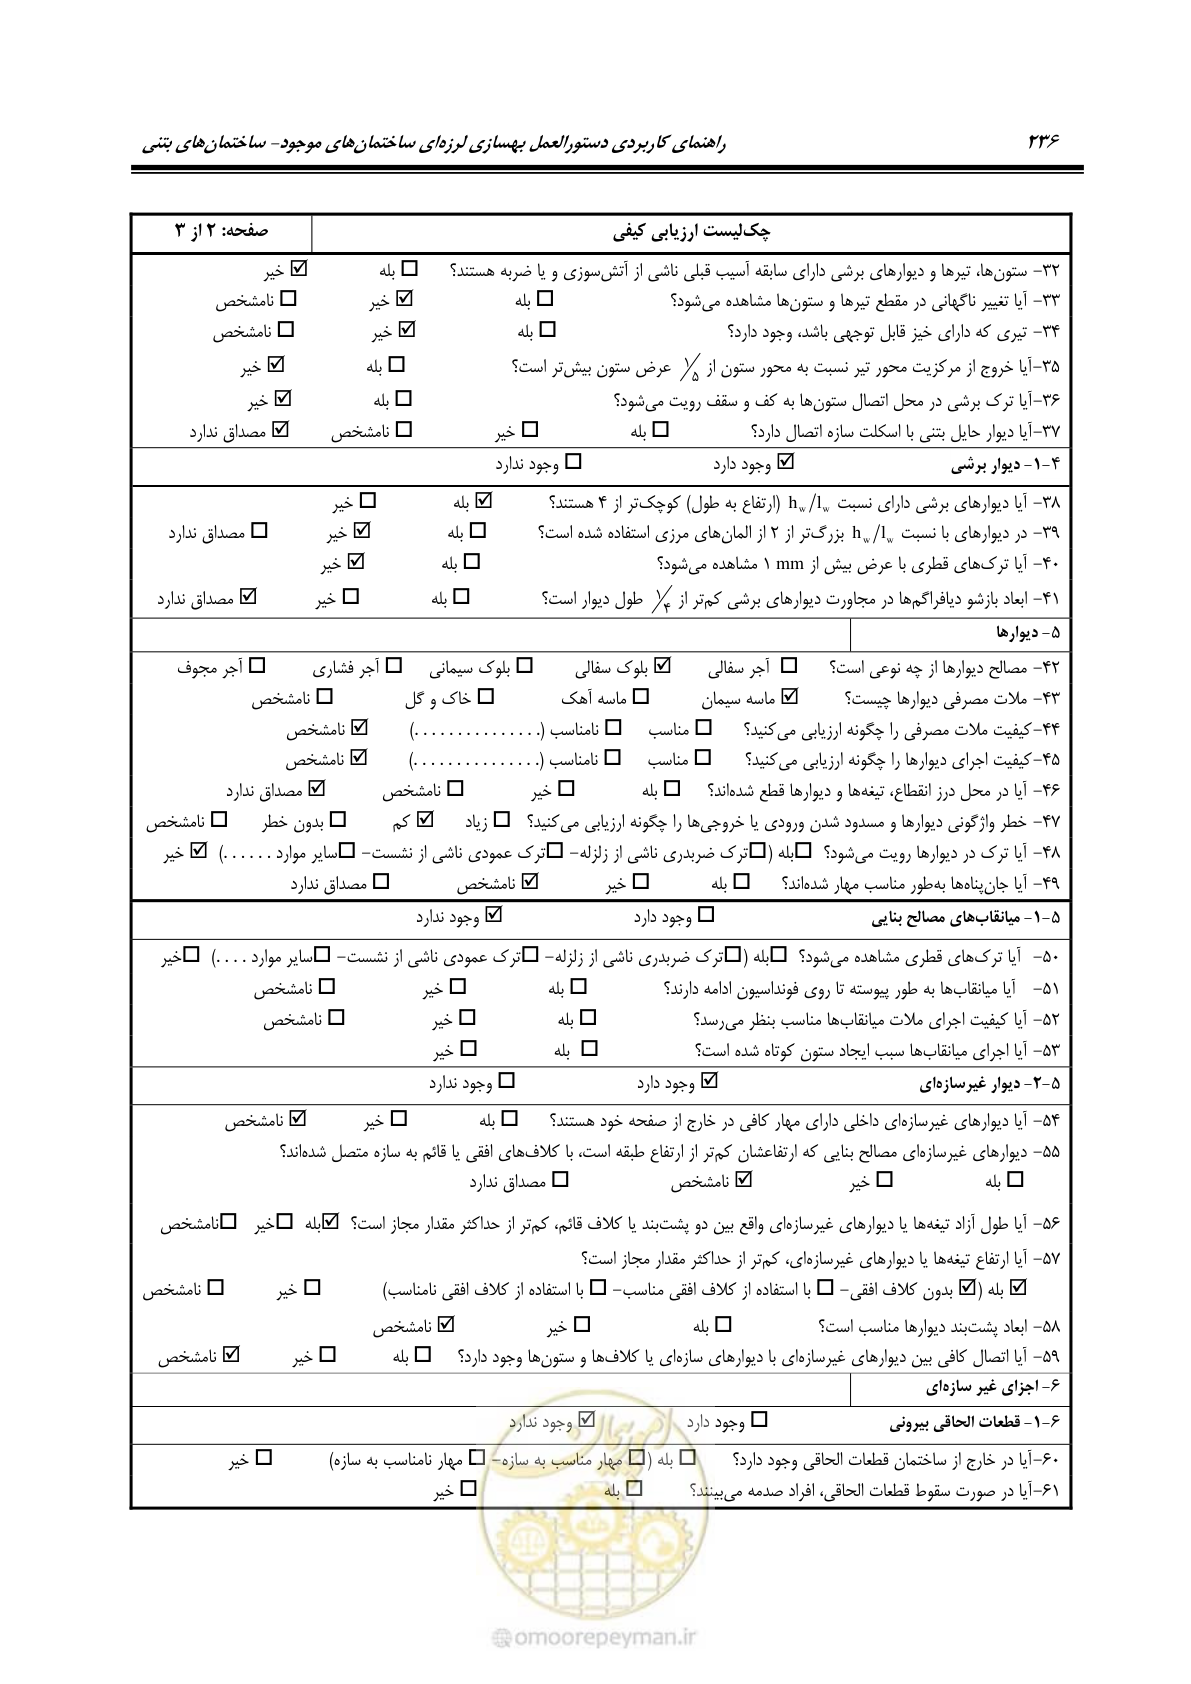 ۲۳۶ راهنمای کاربردی دستورالعمل بهسازی لرزه‌ای ساختمان‌های موجود- ساختمان‌های بتنی
چک‌لیست ارزیابی کیفی صفحه: ۲ از ۳
۳۲- ستون‌ها، تیرها و دیوارهای برشی دارای سابقه آسیب قبلی ناشی از آتش‌سوزی و یا ضربه هستند؟ ☐ بله ☑ خیر
۳۳- آیا تغییر ناگهانی در مقطع تیرها و ستون‌ها مشاهده می‌شود؟ ☐ بله ☑ خیر ☐ نامشخص
۳۴- تیری که دارای خیز قابل توجهی باشد، وجود دارد؟ ☐ بله ☑ خیر ☐ نامشخص
۳۵-آیا خروج از مرکزیت محور تیر نسبت به محور ستون از ۱/۵ عرض ستون بیش‌تر است؟ ☐ بله ☑ خیر
۳۶-آیا ترک برشی در محل اتصال ستون‌ها به کف و سقف رویت می‌شود؟ ☐ بله ☑ خیر
۳۷-آیا دیوار حایل بتنی با اسکلت سازه اتصال دارد؟ ☐ بله ☐ خیر ☐ نامشخص ☑ مصداق ندارد
۴-۱- دیوار برشی ☑ وجود دارد ☐ وجود ندارد
۳۸- آیا دیوارهای برشی دارای نسبت hw/lw (ارتفاع به طول) کوچک‌تر از ۴ هستند؟ ☑ بله ☐ خیر
۳۹- در دیوارهای با نسبت hw/lw بزرگ‌تر از ۲ از المان‌های مرزی استفاده شده است؟ ☐ بله ☑ خیر ☐ مصداق ندارد
۴۰- آیا ترک‌های قطری با عرض بیش از ۱ mm مشاهده می‌شود؟ ☐ بله ☑ خیر
۴۱- ابعاد بازشو دیافراگم‌ها در مجاورت دیوارهای برشی کم‌تر از ۱/۴ طول دیوار است؟ ☐ بله ☐ خیر ☑ مصداق ندارد
۵- دیوارها
۴۲- مصالح دیوارها از چه نوعی است؟ ☐ آجر سفالی ☑ بلوک سفالی ☐ بلوک سیمانی ☐ آجر فشاری ☐ آجر مجوف
۴۳- ملات مصرفی دیوارها چیست؟ ☑ ماسه سیمان ☐ ماسه آهک ☐ خاک و گل ☐ نامشخص
۴۴-کیفیت ملات مصرفی را چگونه ارزیابی می‌کنید؟ ☐ مناسب ☐ نامناسب (...............) ☑ نامشخص
۴۵-کیفیت اجرای دیوارها را چگونه ارزیابی می‌کنید؟ ☐ مناسب ☐ نامناسب (...............) ☑ نامشخص
۴۶- آیا در محل درز انقطاع، تیغه‌ها و دیوارها قطع شده‌اند؟ ☐ بله ☐ خیر ☐ نامشخص ☑ مصداق ندارد
۴۷- خطر واژگونی دیوارها و مسدود شدن ورودی یا خروجی‌ها را چگونه ارزیابی می‌کنید؟ ☐ زیاد ☑ کم ☐ بدون خطر ☐ نامشخص
۴۸- آیا ترک در دیوارها رویت می‌شود؟ ☐بله (☐ترک ضربدری ناشی از زلزله- ☐ترک عمودی ناشی از نشست- ☐سایر موارد ......) ☑ خیر
۴۹- آیا جان‌پناه‌ها به‌طور مناسب مهار شده‌اند؟ ☐ بله ☐ خیر ☑ نامشخص ☐ مصداق ندارد
۵-۱- میانقاب‌های مصالح بنایی ☐ وجود دارد ☑ وجود ندارد
۵۰- آیا ترک‌های قطری مشاهده می‌شود؟ ☐بله (☐ترک ضربدری ناشی از زلزله- ☐ترک عمودی ناشی از نشست- ☐سایر موارد ....) ☐خیر
۵۱- آیا میانقاب‌ها به طور پیوسته تا روی فونداسیون ادامه دارند؟ ☐ بله ☐ خیر ☐ نامشخص
۵۲- آیا کیفیت اجرای ملات میانقاب‌ها مناسب بنظر می‌رسد؟ ☐ بله ☐ خیر ☐ نامشخص
۵۳- آیا اجرای میانقاب‌ها سبب ایجاد ستون کوتاه شده است؟ ☐ بله ☐ خیر
۵-۲- دیوار غیرسازه‌ای ☑ وجود دارد ☐ وجود ندارد
۵۴- آیا دیوارهای غیرسازه‌ای داخلی دارای مهار کافی در خارج از صفحه خود هستند؟ ☐ بله ☐ خیر ☑ نامشخص
۵۵- دیوارهای غیرسازه‌ای مصالح بنایی که ارتفاعشان کم‌تر از ارتفاع طبقه است، با کلاف‌های افقی یا قائم به سازه متصل شده‌اند؟
☐ بله ☐ خیر ☑ نامشخص ☐ مصداق ندارد
۵۶- آیا طول آزاد تیغه‌ها یا دیوارهای غیرسازه‌ای واقع بین دو پشت‌بند یا کلاف قائم، کم‌تر از حداکثر مقدار مجاز است؟ ☑بله ☐خیر ☐نامشخص
۵۷- آیا ارتفاع تیغه‌ها یا دیوارهای غیرسازه‌ای، کم‌تر از حداکثر مقدار مجاز است؟
☑ بله (☑ بدون کلاف افقی- ☐ با استفاده از کلاف افقی مناسب- ☐ با استفاده از کلاف افقی نامناسب) ☐ خیر ☐ نامشخص
۵۸- ابعاد پشت‌بند دیوارها مناسب است؟ ☐ بله ☐ خیر ☑ نامشخص
۵۹- آیا اتصال کافی بین دیوارهای غیرسازه‌ای با دیوارهای سازه‌ای یا کلاف‌ها و ستون‌ها وجود دارد؟ ☐ بله ☐ خیر ☑ نامشخص
۶- اجزای غیر سازه‌ای
۶-۱- قطعات الحاقی بیرونی ☐ وجود دارد ☑ وجود ندارد
۶۰-آیا در خارج از ساختمان قطعات الحاقی وجود دارد؟ ☐ بله (☐ مهار مناسب به سازه- ☐ مهار نامناسب به سازه) ☐ خیر
۶۱-آیا در صورت سقوط قطعات الحاقی، افراد صدمه می‌بینند؟ ☐ بله ☐ خیر
امور پیمان
@omoorepeyman.ir